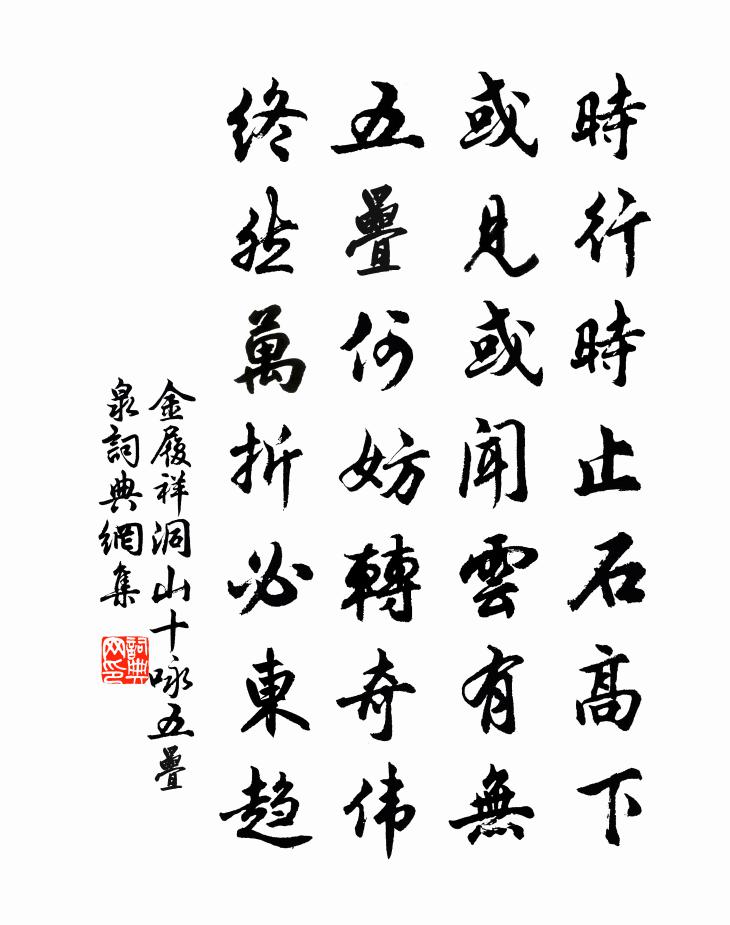 時行時止石高下
或見或聞雲有無
五疊何妨轉奇伟
終然萬折必東趋
金履祥洞山十咏五疊
泉詞典網集
詞典网印